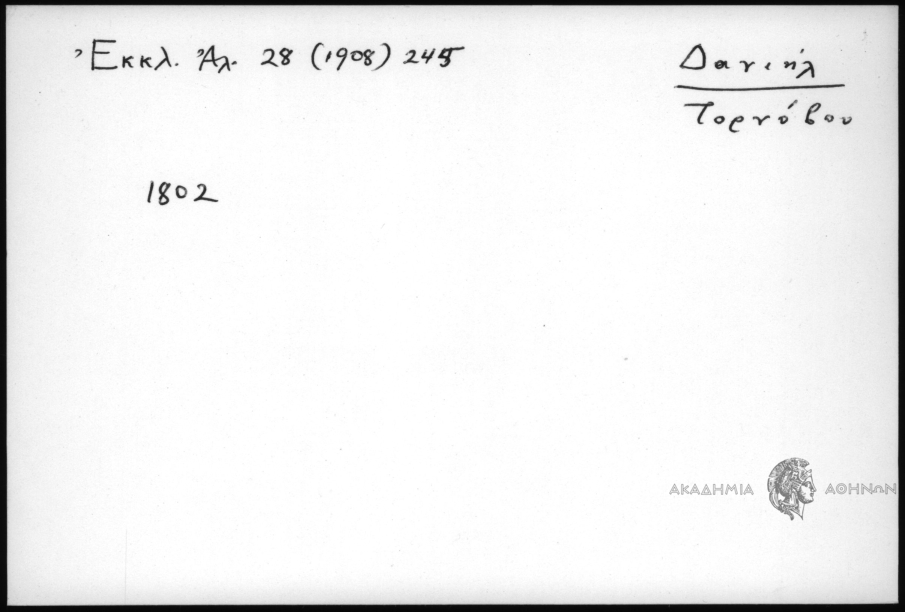 Ἐκκλ. Ἀλ. 28 (1908) 245
Δανιήλ
Τορνόβου
1802
ΑΚΑΔΗΜΙΑ ΑΘΗΝΩΝ